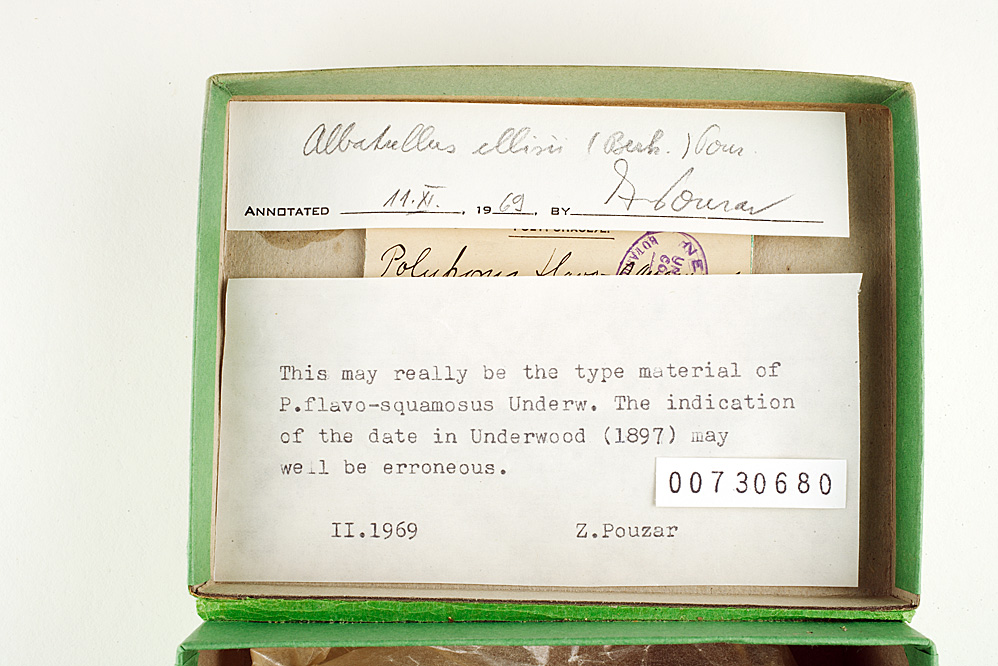 Albatrellus ellisii (Berk.) Pouz.
ANNOTATED 11.XI., 1969, BY Z. Pouzar
Polyporus flavo-squamosus
This may really be the type material of
P.flavo-squamosus Underw. The indication
of the date in Underwood (1897) may
well be erroneous.
00730680
II.1969 Z.Pouzar